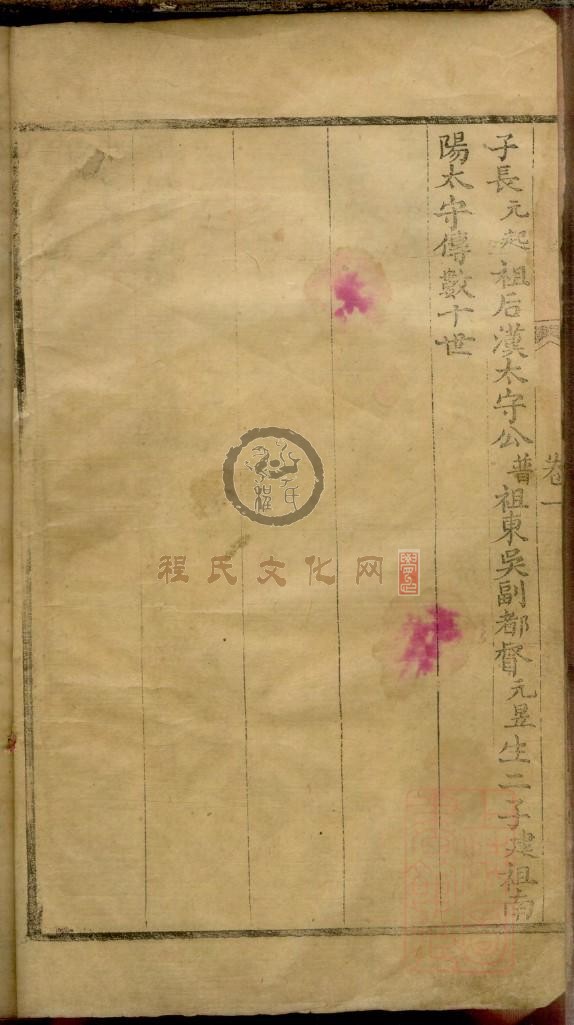 卷一
子長元起祖后漢太守公普祖東吳副都督元昱生二子建祖南
陽太守傳數十世
程氏文化网